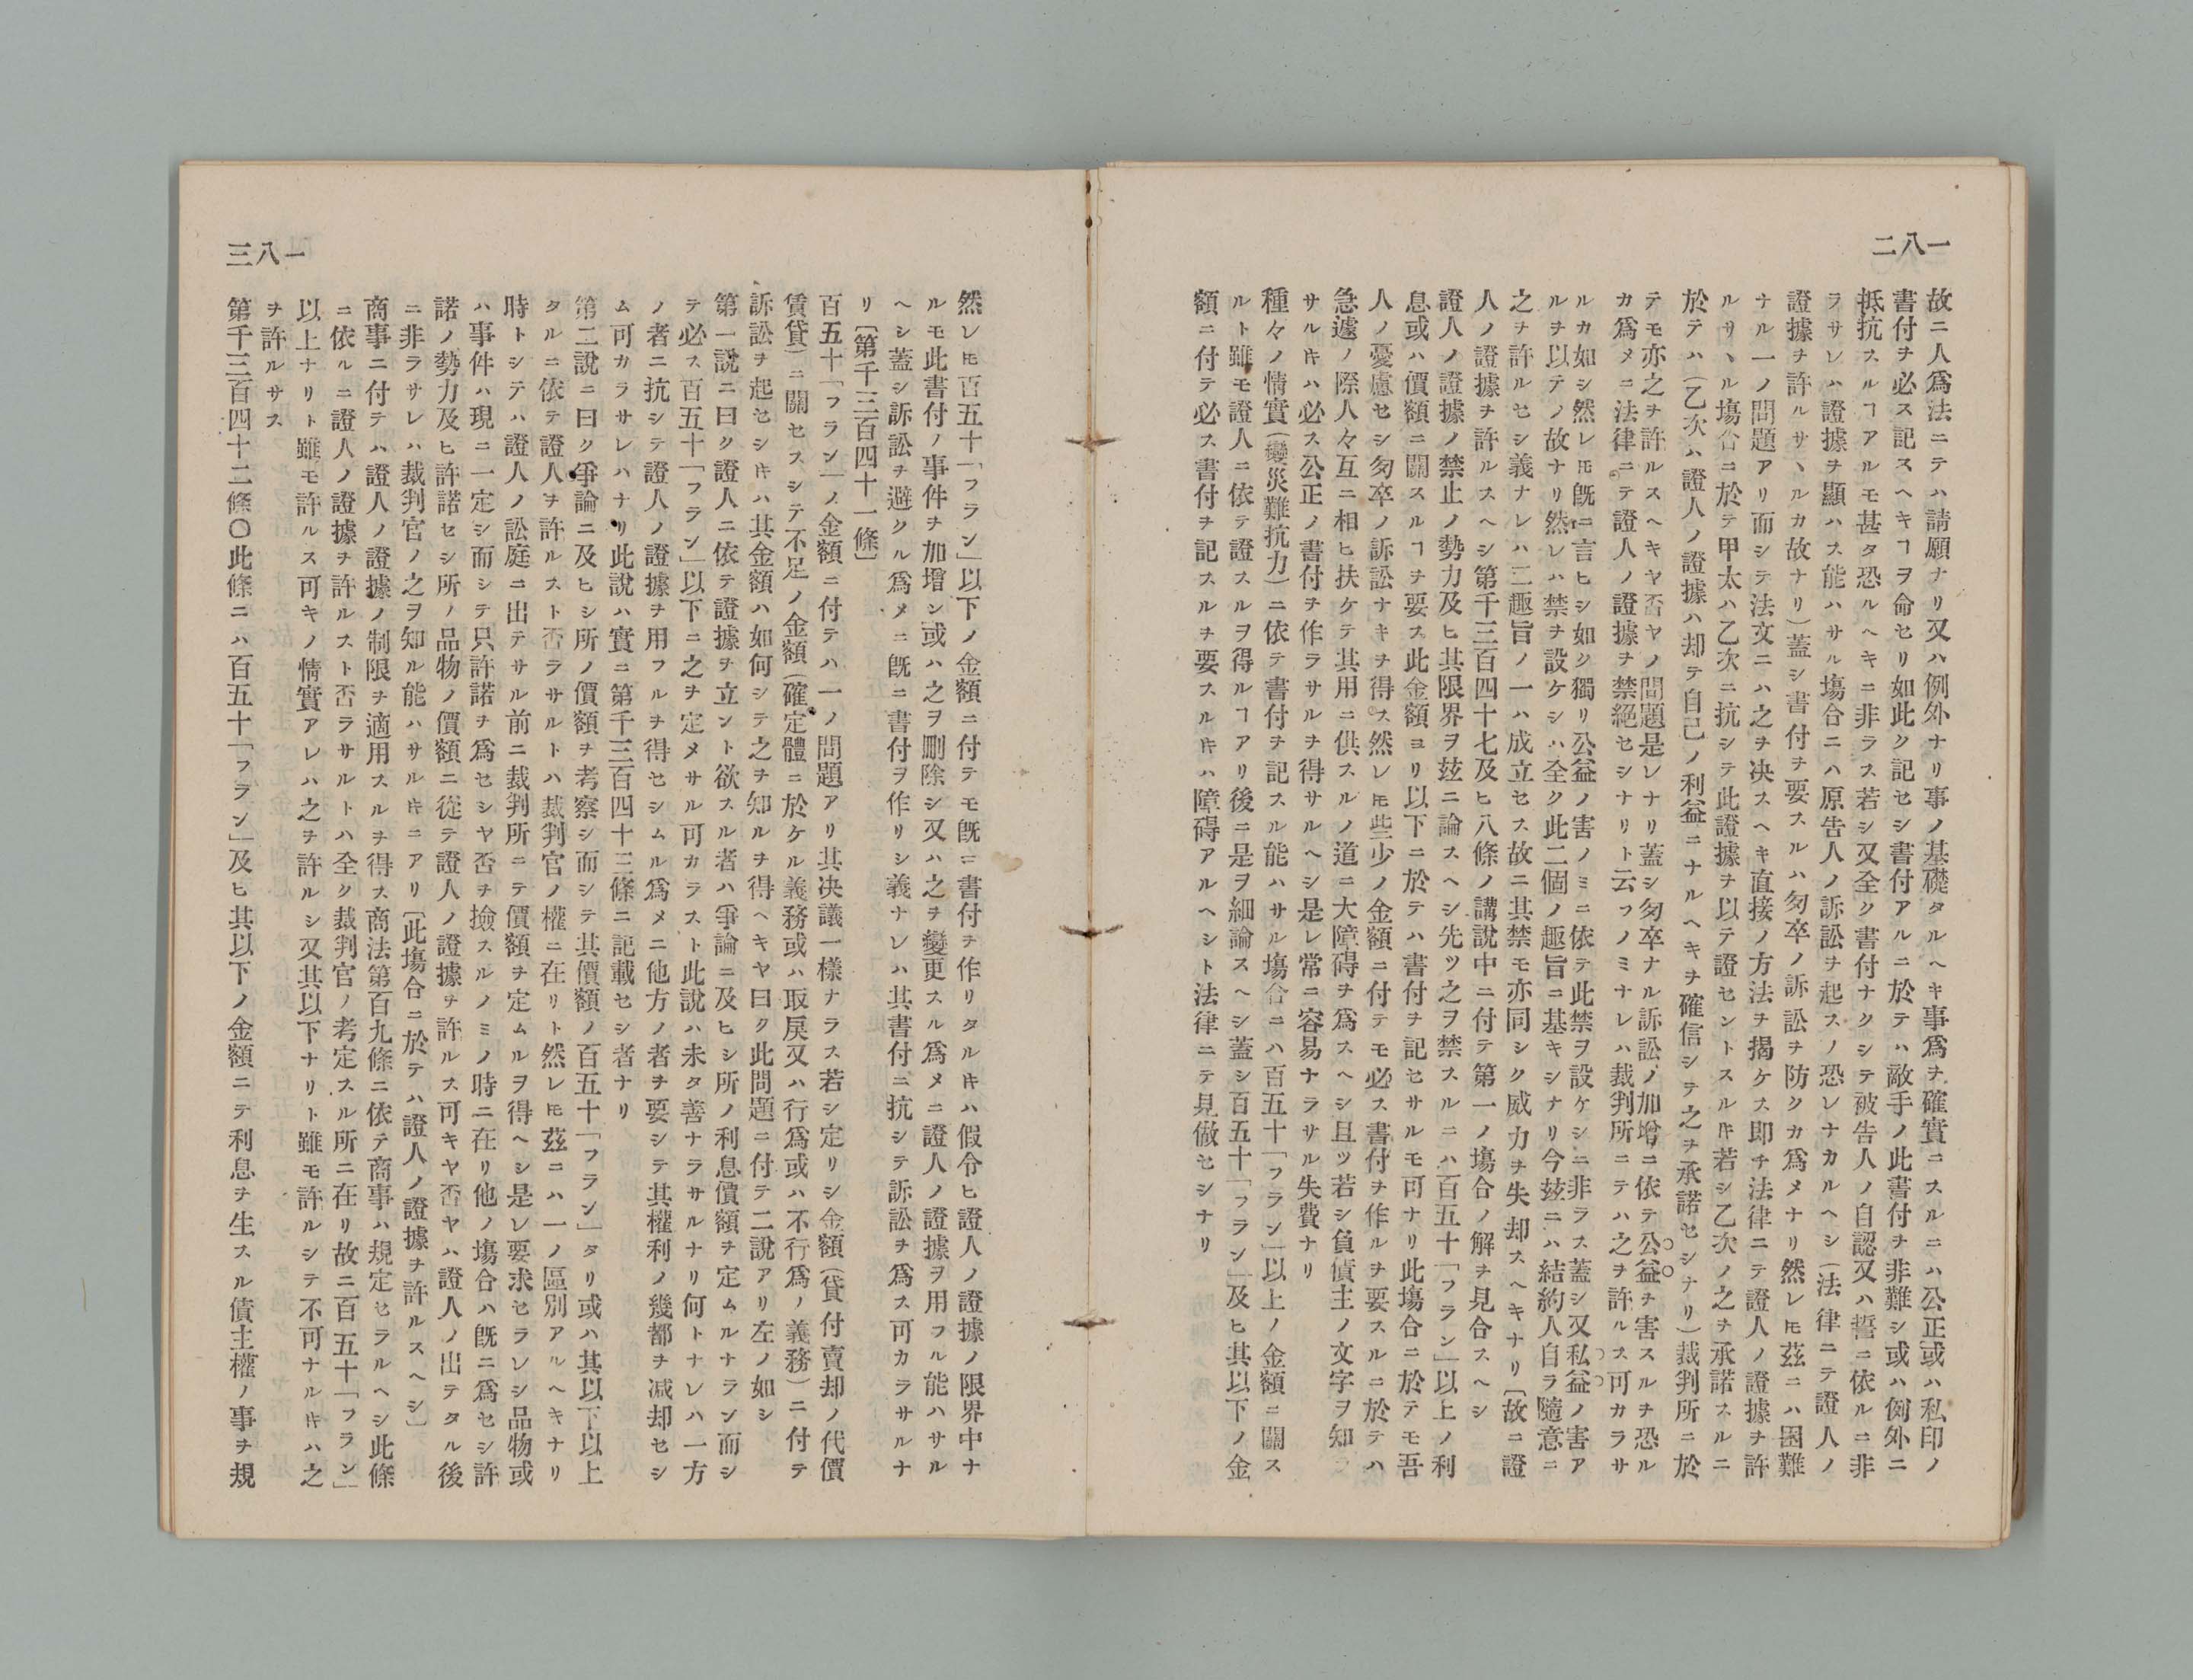 一八二
故ニ人爲法ニテハ請願ナリ又ハ例外ナリ事ノ基礎タルヘキ事爲ヲ確實ニスルニハ公正或ハ私印ノ
書付ヲ必ス記スヘキヿヲ命セリ如此ク記セシ書付アルニ於テハ敵手ノ此書付ヲ非難シ或ハ例外ニ
抵抗スルヿアルモ甚タ恐ルヘキニ非ラス若シ又全ク書付ナクシテ被告人ノ自認又ハ誓ニ依ルニ非
ラサレハ證據ヲ顯ハス能ハサル塲合ニハ原告人ノ訴訟ヲ起スノ恐レナカルヘシ(法律ニテ證人ノ
證據ヲ許ルサヽルカ故ナリ)蓋シ書付ヲ要スルハ匆卒ノ訴訟ヲ防クカ爲メナリ然レ𪜈茲ニハ困難
ナル一ノ問題アリ而シテ法文ニハ之ヲ决スヘキ直接ノ方法ヲ揭ケス即チ法律ニテ證人ノ證據ヲ許
ルサヽル塲合ニ於テ甲太ハ乙次ニ抗シテ此證據ヲ以テ證セントスル𪜈若シ乙次ノ之ヲ承諾スルニ
於テハ(乙次ハ證人ノ證據ハ却テ自己ノ利益ニナルヘキヲ確信シテ之ヲ承諾セシナリ)裁判所ニ於
テモ亦之ヲ許ルスヘキヤ否ヤノ問題是レナリ蓋シ匆卒ナル訴訟ノ加增ニ依テ公益ヲ害スルヲ恐ル
カ爲メニ法律ニテ證人ノ證據ヲ禁絕セシナリト云フノミナレハ裁判所ニテハ之ヲ許ルス可カラサ
ルカ如シ然レ𪜈既ニ言ヒシ如ク獨リ公益ノ害ノミニ依テ此禁ヲ設ケシニ非ラス蓋シ又私益ノ害ア
ルヲ以テノ故ナリ然レハ禁ヲ設ケシハ全ク此二個ノ趣旨ニ基キシナリ今茲ニハ結約人自ラ隨意ニ
之ヲ許ルセシ義ナレハ二趣旨ノ一ハ成立セス故ニ其禁モ亦同シク威力ヲ失却スヘキナリ〔故ニ證
人ノ證據ヲ許ルスヘシ第千三百四十七及ヒ八條ノ講說中ニ付テ第一ノ塲合ノ解ヲ見合スヘシ
證人ノ證據ノ禁止ノ勢力及ヒ其限界ヲ玆ニ論スヘシ先ツ之ヲ禁スルニハ百五十「フラン」以上ノ利
息或ハ價額ニ關スルヿヲ要ス此金額ヨリ以下ニ於テハ書付ヲ記セサルモ可ナリ此塲合ニ於テモ吾
人ノ憂慮セシ匆卒ノ訴訟ナキヲ得ス然レ𪜈些少ノ金額ニ付テモ必ス書付ヲ作ルヲ要スルニ於テハ
急遽ノ際人々互ニ相ヒ扶ケテ其用ニ供スルノ道ニ大障碍ヲ爲スヘシ且ツ若シ負債主ノ文字ヲ知
サル𪜈ハ必ス公正ノ書付ヲ作ラサルヲ得サルヘシ是レ常ニ容易ナラサル失費ナリ
種々ノ情實(變災難抗力)ニ依テ書付ヲ記スル能ハサル塲合ニハ百五十「フラン」以上ノ金額ニ關ス
ルト雖モ證人ニ依テ證スルヲ得ルヿアリ後ニ是ヲ細論スヘシ蓋シ百五十「フラン」及ヒ其以下ノ金
額ニ付テ必ス書付ヲ記スルヲ要スル𪜈ハ障碍アルヘシト法律ニテ見做セシナリ
一八三
然レ𪜈百五十「フラン」以下ノ金額ニ付テモ既ニ書付ヲ作リタル𪜈ハ假令ヒ證人ノ證據ノ限界中ナ
ルモ此書付ノ事件ヲ加增シ或ハ之ヲ刪除シ又ハ之ヲ變更スル爲メニ證人ノ證據ヲ用フル能ハサル
ヘシ蓋シ訴訟ヲ避クル爲メニ既ニ書付ヲ作リシ義ナレハ其書付ニ抗シテ訴訟ヲ爲ス可カラサルナ
リ〔第千三百四十一條〕
百五十「フラン」ノ金額ニ付テハ一ノ問題アリ其决議一樣ナラス若シ定リシ金額(貸付賣却ノ代價
賃貸)ニ關セスシテ不足ノ金額(確定體ニ於ケル義務或ハ取戾又ハ行爲或ハ不行爲ノ義務)ニ付テ
訴訟ヲ起セシ𪜈ハ其金額ハ如何シテ之ヲ知ルヲ得ヘキヤ曰ク此問題ニ付テ二說アリ左ノ如シ
第一說ニ曰ク證人ニ依テ證據ヲ立ント欲スル者ハ爭論ニ及ヒシ所ノ利息價額ヲ定ムルナラン而シ
テ必ス百五十「フラン」以下ニ之ヲ定メサル可カラスト此說ハ未タ善ナラサルナリ何トナレハ一方
ノ者ニ抗シテ證人ノ證據ヲ用フルヲ得セシムル爲メニ他方ノ者ヲ要シテ其權利ノ幾部ヲ減却セシ
ム可カラサレハナリ此說ハ實ニ第千三百四十三條ニ記載セシ者ナリ
第二說ニ曰ク爭論ニ及ヒシ所ノ價額ヲ考察シ而シテ其價額ノ百五十「フラン」タリ或ハ其以下以上
タルニ依テ證人ヲ許ルスト否ラサルトハ裁判官ノ權ニ在リト然レ𪜈茲ニハ一ノ區別アルヘキナリ
時トシテハ證人ノ訟庭ニ出テサル前ニ裁判所ニテ價額ヲ定ムルヲ得ヘシ是レ要求セラレシ品物或
ハ事件ハ現ニ一定シ而シテ只許諾ヲ爲セシヤ否ヲ撿スルノミノ時ニ在リ他ノ塲合ハ既ニ爲セシ許
諾ノ勢力及ヒ許諾セシ所ノ品物ノ價額ニ從テ證人ノ證據ヲ許ルス可キヤ否ヤハ證人ノ出テタル後
ニ非ラサレハ裁判官ノ之ヲ知ル能ハサル𪜈ニアリ〔此塲合ニ於テハ證人ノ證據ヲ許ルスヘシ〕
商事ニ付テハ證人ノ證據ノ制限ヲ適用スルヲ得ス商法第百九條ニ依テ商事ハ規定セラルヘシ此條
ニ依ルニ證人ノ證據ヲ許ルスト否ラサルトハ全ク裁判官ノ考定スル所ニ在リ故ニ百五十「フラン」
以上ナリト雖モ許ルス可キノ情實アレハ之ヲ許ルシ又其以下ナリト雖モ許ルシテ不可ナル𪜈ハ之
ヲ許ルサス
第千三百四十二條〇此條ニハ百五十「フラン」及ヒ其以下ノ金額ニテ利息ヲ生スル債主權ノ事ヲ規